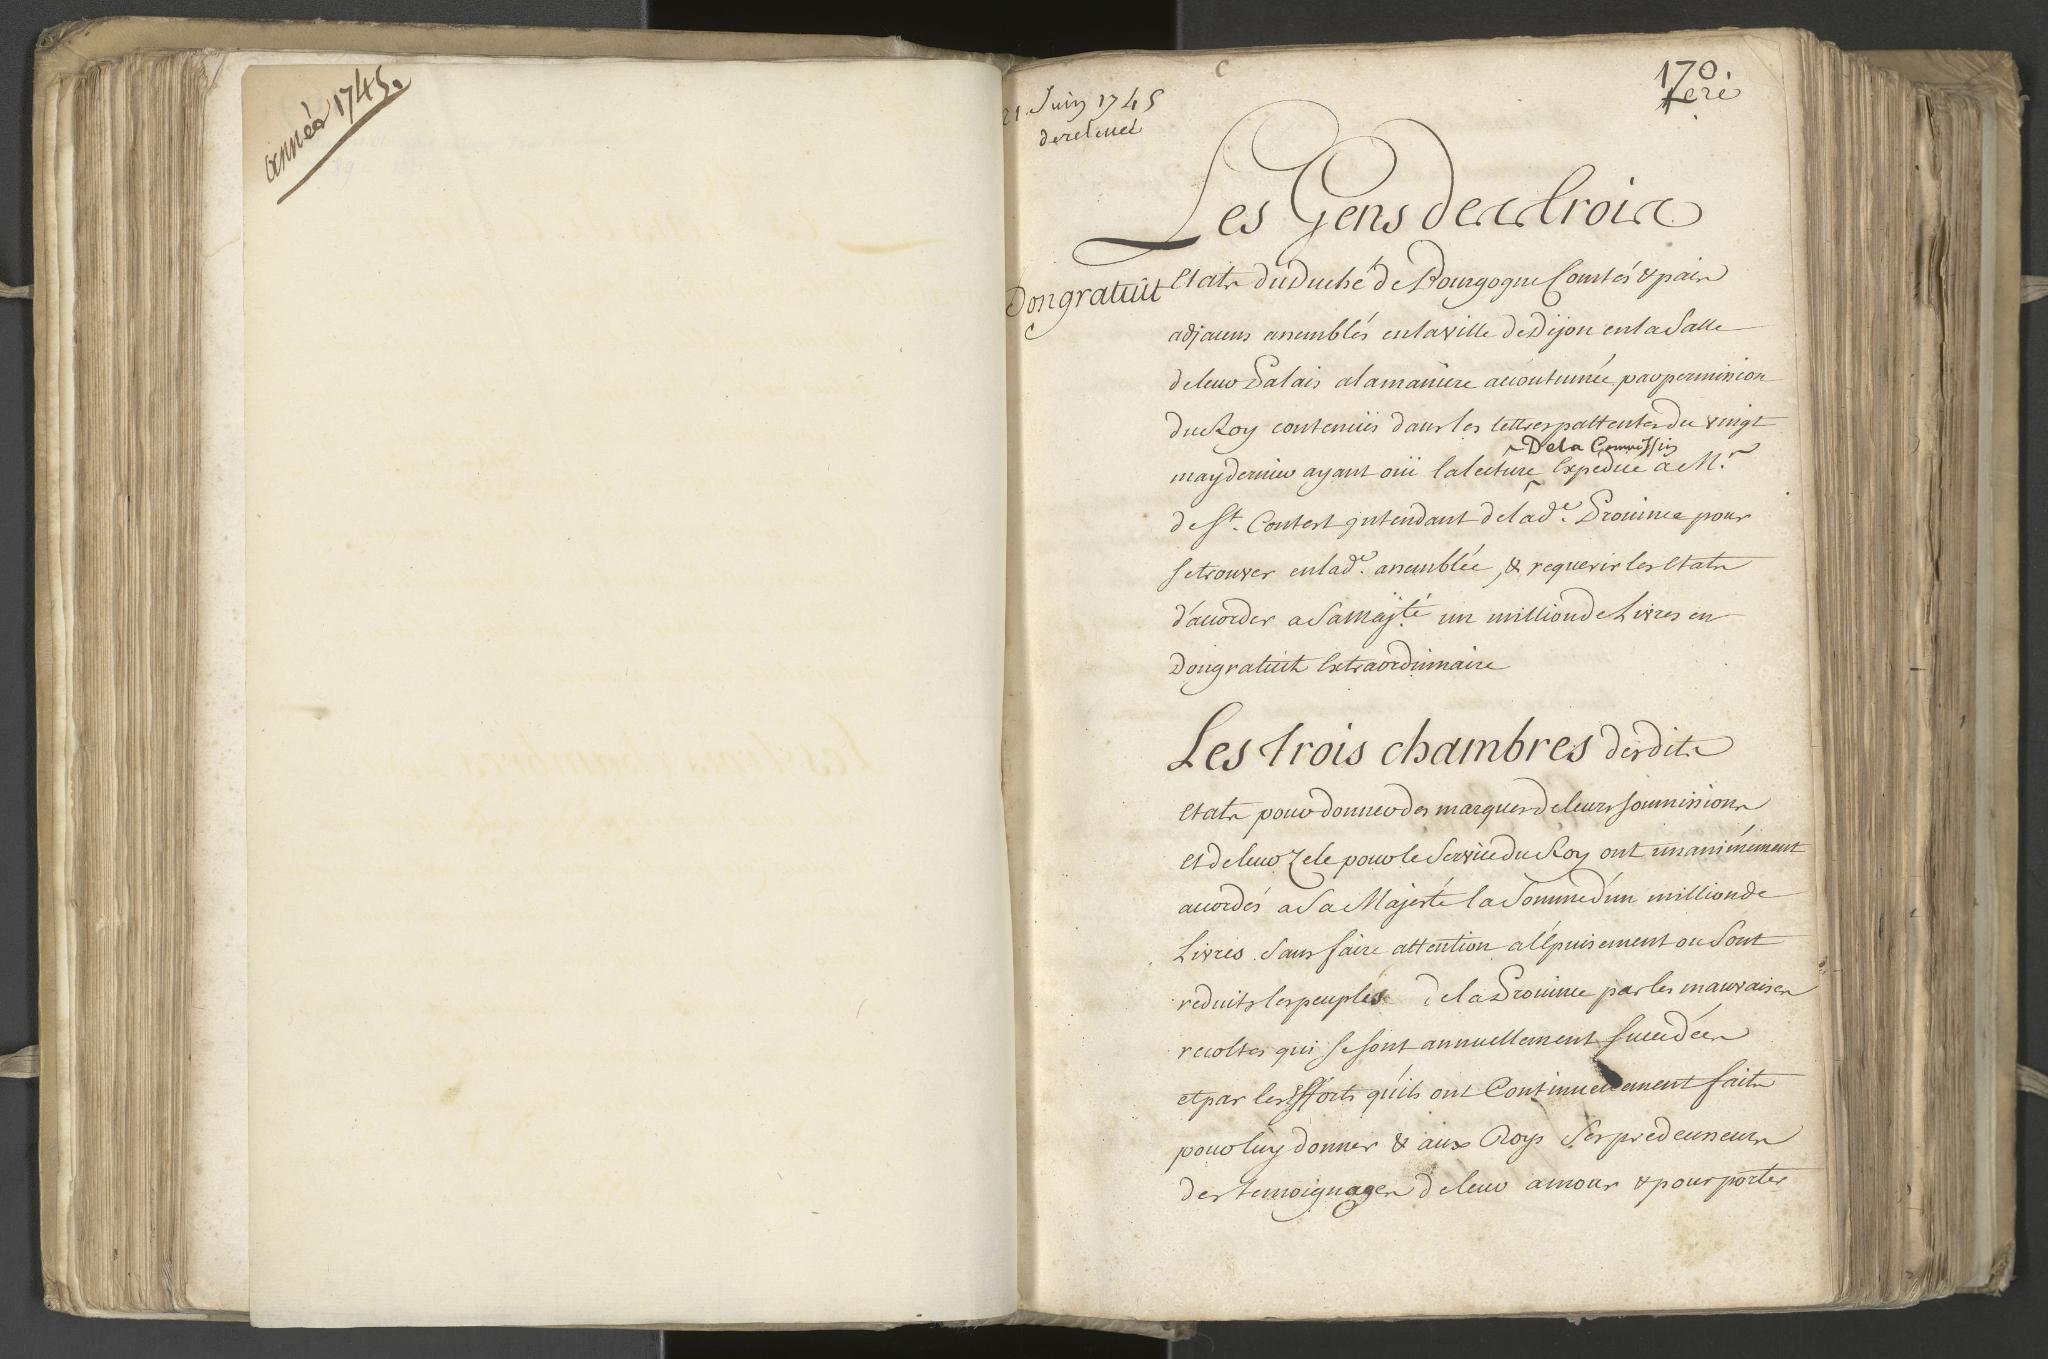 année 1745.
170.
21. Juin 1745
de relevée
Les Gens des trois
Don gratuit
Etats du Duché de Bourgogne Comtés & païs
adjacens assemblés en la ville de Dijon en la Salle
de leur Palais a la maniere accoutumée par permission
du Roy contenües dans les lettres pattentes du vingt
may dernier ayant oüi la lecture De la Commission Expediée a M.r
de St. Contest jntendant de lad.e Province pour
se trouver en lad.e assemblée, & requerir les Etats
d'accorder a Sa Majté un million de Livres en
Don gratuit Extraordinaire
Les trois chambres desdits
Etats pour donner des marques de leurs soumissions
et de leur Zele pour le Service du Roy ont unanimément
accordés a Sa Majesté la Somme d'un million de
Livres sans faire attention a l'épuisement ou Sont
reduits les peuples de la Province par les mauvaises
recoltes qui se sont annuellement succedées
et par les Efforts qu'ils ont Continuellement faits
pour luy donner & aux Roys Ses predecesseurs
des temoignages de leur amour & pour porter